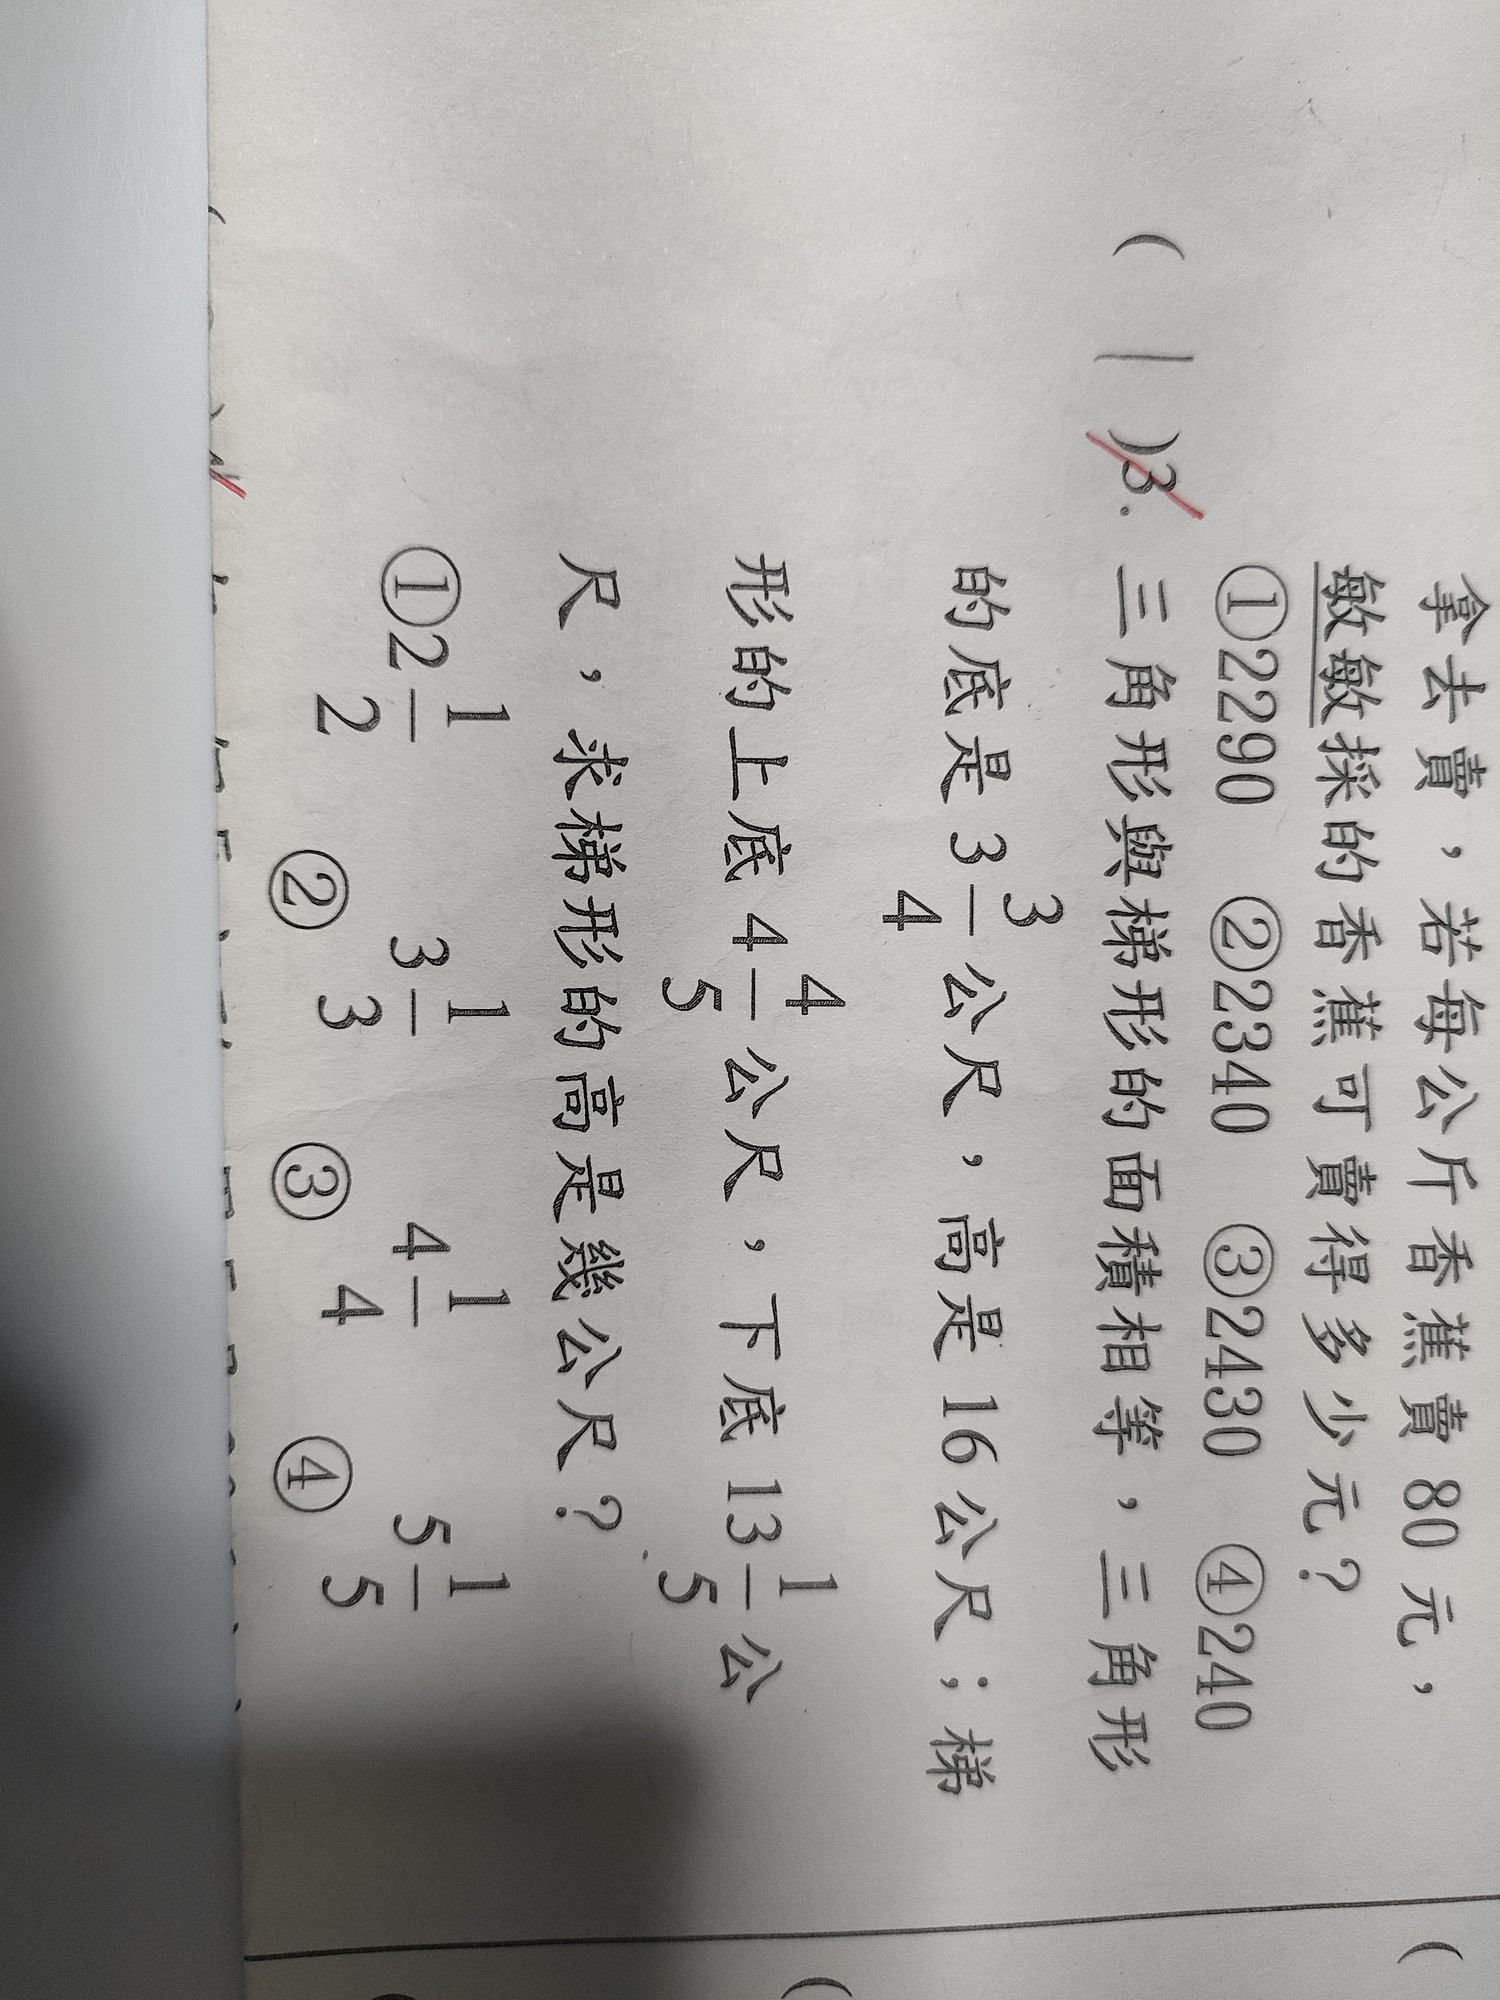 拿去賣，若每公斤香蕉賣80元，
敏敏採的香蕉可賣得多少元？
①2290 ②2340 ③2430 ④240
( 1 )3. 三角形與梯形的面積相等，三角形
的底是 3 3/4 公尺，高是 16 公尺；梯
形的上底 4 4/5 公尺，下底 13 1/5 公
尺，求梯形的高是幾公尺？
①2 1/2 ②3 1/3 ③4 1/4 ④5 1/5